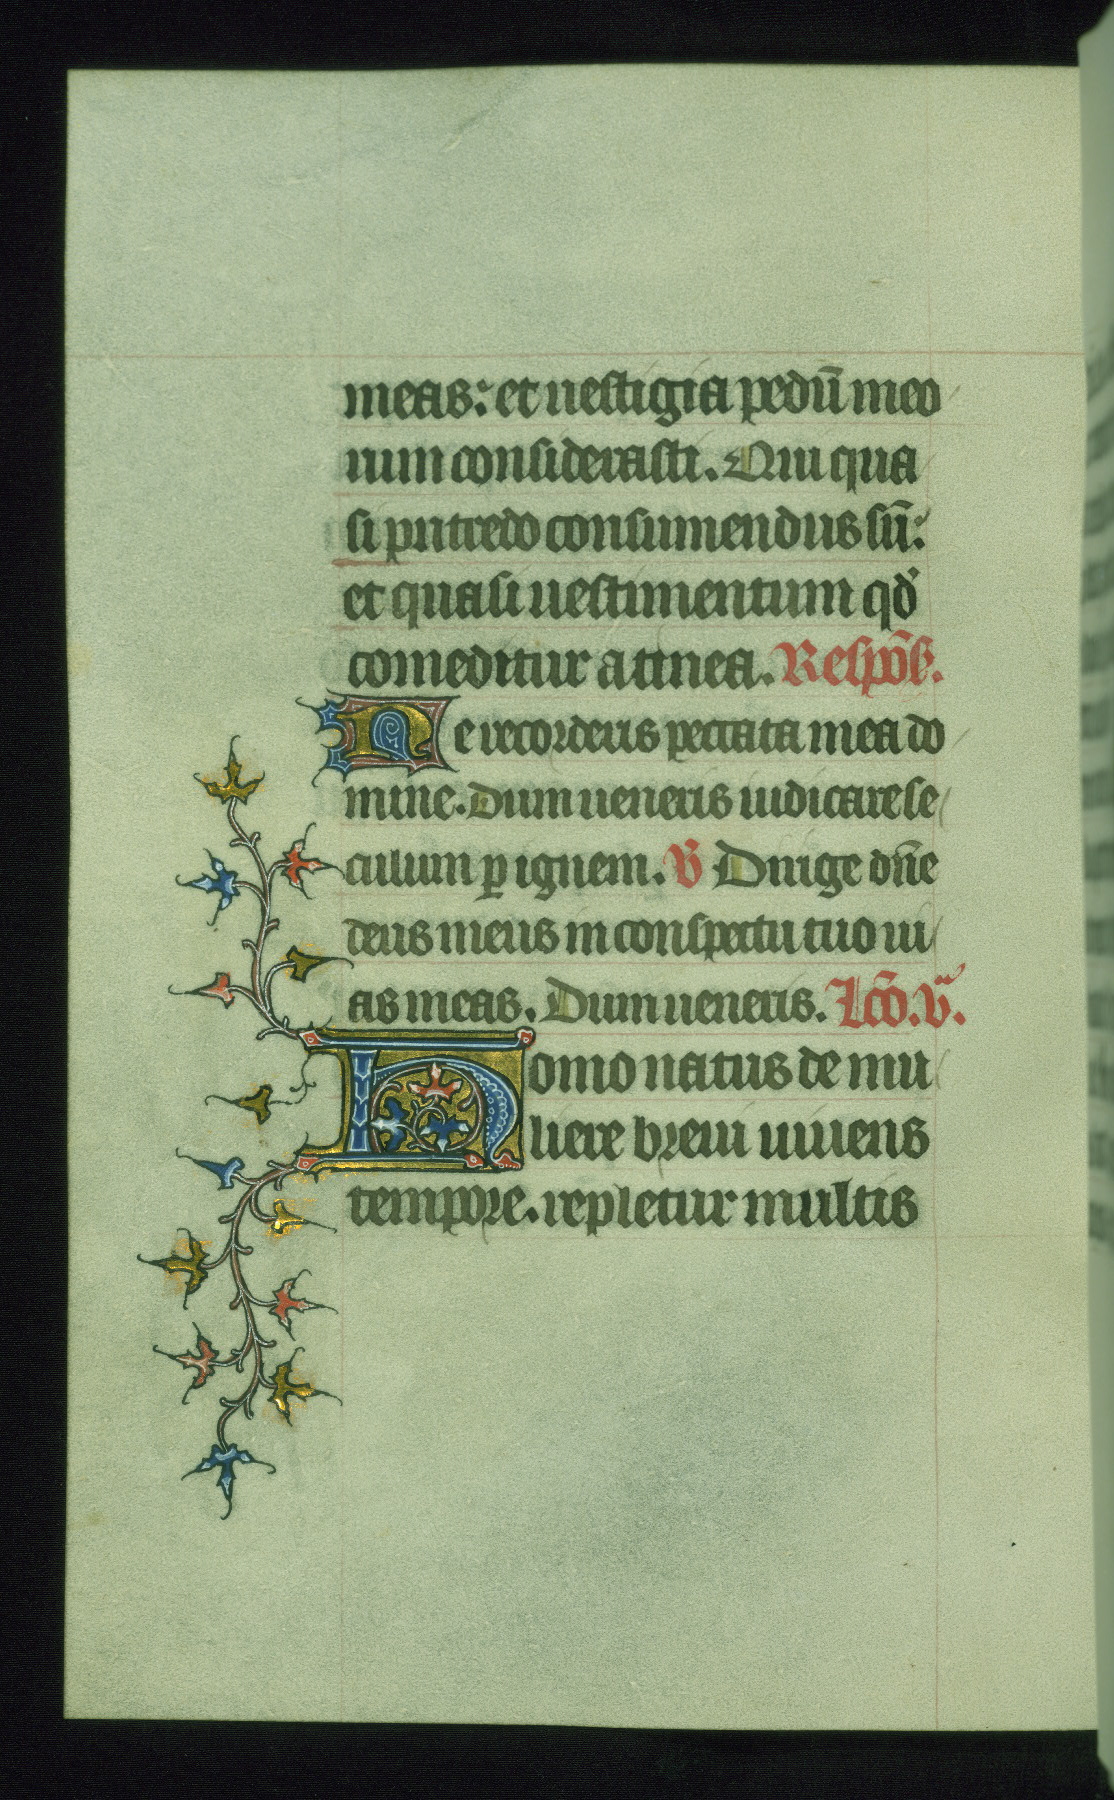 meas: et uestigia pedū meo
rum considerasti. Qui qua
si putredo consumendus sū:
et quasi uestimentum qd'
comeditur a tinea. Respōs.
Ne recorderis peccata mea do
mine. Dum ueneris iudicare se
culum ꝑ ignem. V Dirige dn̄e
deus meus in conspectu tuo ui
as meas. Dum ueneris. Lcō. v̄.
Homo natus de mu
liere breui uiuens
tempore. repletur multis